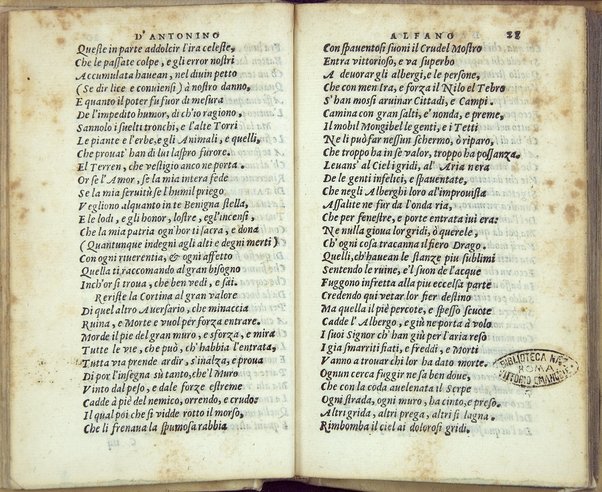 D'ANTONINO
Queste in parte addolcir l'ira celeste,
Che le passate colpe, e gli error nostri
Accumulata hauean, nel diuin petto
(Se dir lice e conuiensi) à nostro danno,
E quanto il poter fu fuor di mesura
De l'impedito humor, di ch'io ragiono,
Sannolo i suelti tronchi, e l'alte Torri
Le piante e l'erbe, e gli Animali, e quelli,
Che prouat' han di lui l'aspro furore.
El Terren, che vestigio anco ne porta.
Or se l'Amor, se la mia intera fede
Se la mia seruitù se l humil priego
Vagliono alquanto in te Benigna stella,
E le lodi, e gli honor, lostre, egl'incensi,
Che la mia patria ogn'hor ti sacra, e dona
(Quantunque indegni agli alti e degni merti)
Con ogni riuerentia, & ogni affetto
Quella ti raccomando al gran bisogno
Inch'or si troua, che ben vedi, e sai.
Reriste la Cortina al gran valore
Di quel altro Auersario, che minaccia
Ruina, e Morte e vuol per forza entrare,
Morde il pie del gran muro, e sforza, e mira
Tutte le vie, che può, ch'habbia l'entrata,
Tutta via prende ardir, s'inalza, e proua
Di por l'insegna sù tanto, che'l Muro
Vinto dal peso, e dale forze estreme
Cadde à piè del nemico, orrendo, e crudo:
Il qual poi che si vidde rotto il morso,
Che li frenaua la spumosa rabbia
ALFANO 28
Con spauentosi suoni il Crudel Mostro
Entra vittorioso, e va superbo
A deuorar gli alberghi, e le persone,
Che con men ira, e forza il Nilo el Tebro
S'han mosi aruinar Cittadi, e Campi.
Camina con gran salti, e' nonda, e preme,
Il mobil Mongibel le genti, e i Tetti
Ne li può far nessun schermo, ò riparo,
Che troppo ha in se valor, troppo ha possanza.
Leuans' al Ciel i gridi, al' Aria nera
De le genti infelici, e spauentate,
Che negli Alberghi loro al'improuista
Assalite ne fur da l'onda ria,
Che per fenestre, e porte entrata iui era:
Ne nulla gioua lor gridi, ò querele,
Ch'ogni cosa tracanna il fiero Drago.
Quelli, ch'hauean le stanze piu sublimi
Sentendo le ruine, e'l suon de l'acque
Fuggono infretta alla piu eccelsa parte
Credendo qui vetar lor fier destino
Ma quella il piè percote, e spesso scuote
Cadde l'Albergo, e giù ne porta à volo
I suoi Signor ch'han giù per l'aria reso
I gia smarriti fiati, e freddi, e Morti
Vanno a trouar chi lor ha dato morte.
Ognun cerca fuggir ne sa ben doue,
Che con la coda auelenata il Serpe
Ogni strada, ogni muro, ha cinto, e preso.
Altri grida, altri prega, altri si lagna.
Rimbomba il ciel ai dolorosi gridi.
BIBLIOTECA NAZ
ROMA
VITTORIO EMANUELE